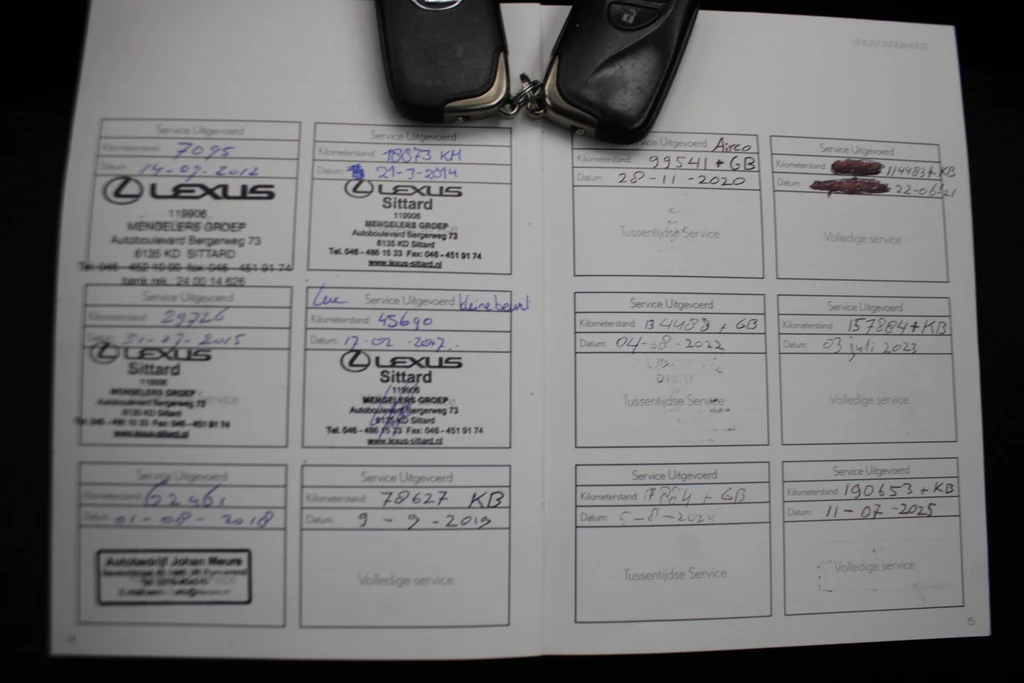 LEXUS ONDERHOUD
Service Uitgevoerd
Kilometerstand: 7095
Datum: 14-09-2012
LEXUS
119906
MENGELERS GROEP
Autoboulevard Bergerweg 73
6135 KD SITTARD
Tel. 046 - 452 10 00 fax 046 - 451 91 74
bank rek. 24 00 14 626
Service Uitgevoerd
Kilometerstand: 18873 KM
Datum: 21-3-2014
LEXUS
Sittard
119906
MENGELERS GROEP
Autoboulevard Bergerweg 73
6135 KD Sittard
Tel. 046 - 486 15 33 Fax: 046 - 451 91 74
www.lexus-sittard.nl
Service Uitgevoerd
Kilometerstand: 29726
Datum: 31-07-2015
LEXUS
Sittard
119906
MENGELERS GROEP
Autoboulevard Bergerweg 73
6135 KD Sittard
Tel. 046 - 486 15 33 Fax: 046 - 451 91 74
www.lexus-sittard.nl
Service Uitgevoerd kleine beurt
Kilometerstand: 45690
Datum: 17-02-2017
LEXUS
Sittard
119906
MENGELERS GROEP
Autoboulevard Bergerweg 73
6135 KD Sittard
Tel. 046 - 486 15 33 Fax: 046 - 451 91 74
www.lexus-sittard.nl
Service Uitgevoerd
Kilometerstand: 62461
Datum: 01-08-2018
Autobedrijf Johan Meurs
Service Uitgevoerd
Kilometerstand: 78627 KB
Datum: 9-9-2019
Volledige service
14
Service Uitgevoerd Airco
Kilometerstand: 99541 + GB
Datum: 28-11-2020
Tussentijdse Service
Service Uitgevoerd
Kilometerstand: 114483 + KB
Datum: 22-06-21
Volledige service
Service Uitgevoerd
Kilometerstand: 134488 + GB
Datum: 04-08-2022
Tussentijdse Service
Service Uitgevoerd
Kilometerstand: 157884 + KB
Datum: 03 juli 2023
Volledige service
Service Uitgevoerd
Kilometerstand: + GB
Datum: 5-8-2024
Tussentijdse Service
Service Uitgevoerd
Kilometerstand: 190653 + KB
Datum: 11-07-2025
Volledige service
15